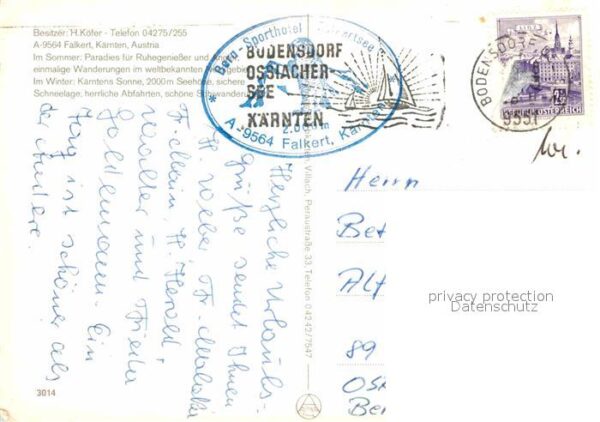 Besitzer: H. Köfer - Telefon 04275/255
A-9564 Falkert, Kärnten, Austria
Im Sommer: Paradies für Ruhegenießer und
einmalige Wanderungen im weltbekannten
Im Winter: Kärntens Sonne, 2000 m Seehöhe, sichere
Schneelage; herrliche Abfahrten, schöne
Berg-Sporthotel
2.000 m
A-9564 Falkert, Kärnten
BODENSDORF
OSSIACHER-
SEE
KÄRNTEN
BODENSDORF
9551
LINZ
REPUBLIK ÖSTERREICH
Herzliche Urlaubs-
grüße sendet Ihnen
H. Weber Fr.
Fr. H. Herold
Walter und Frieda
Goldmann. Ein
Tag ist schöner als
der andere.
Villach, Peraustraße 33, Telefon 04242/7547
Herrn
Bet
Alf
89
Ost
Ber
privacy protection
Datenschutz
3014